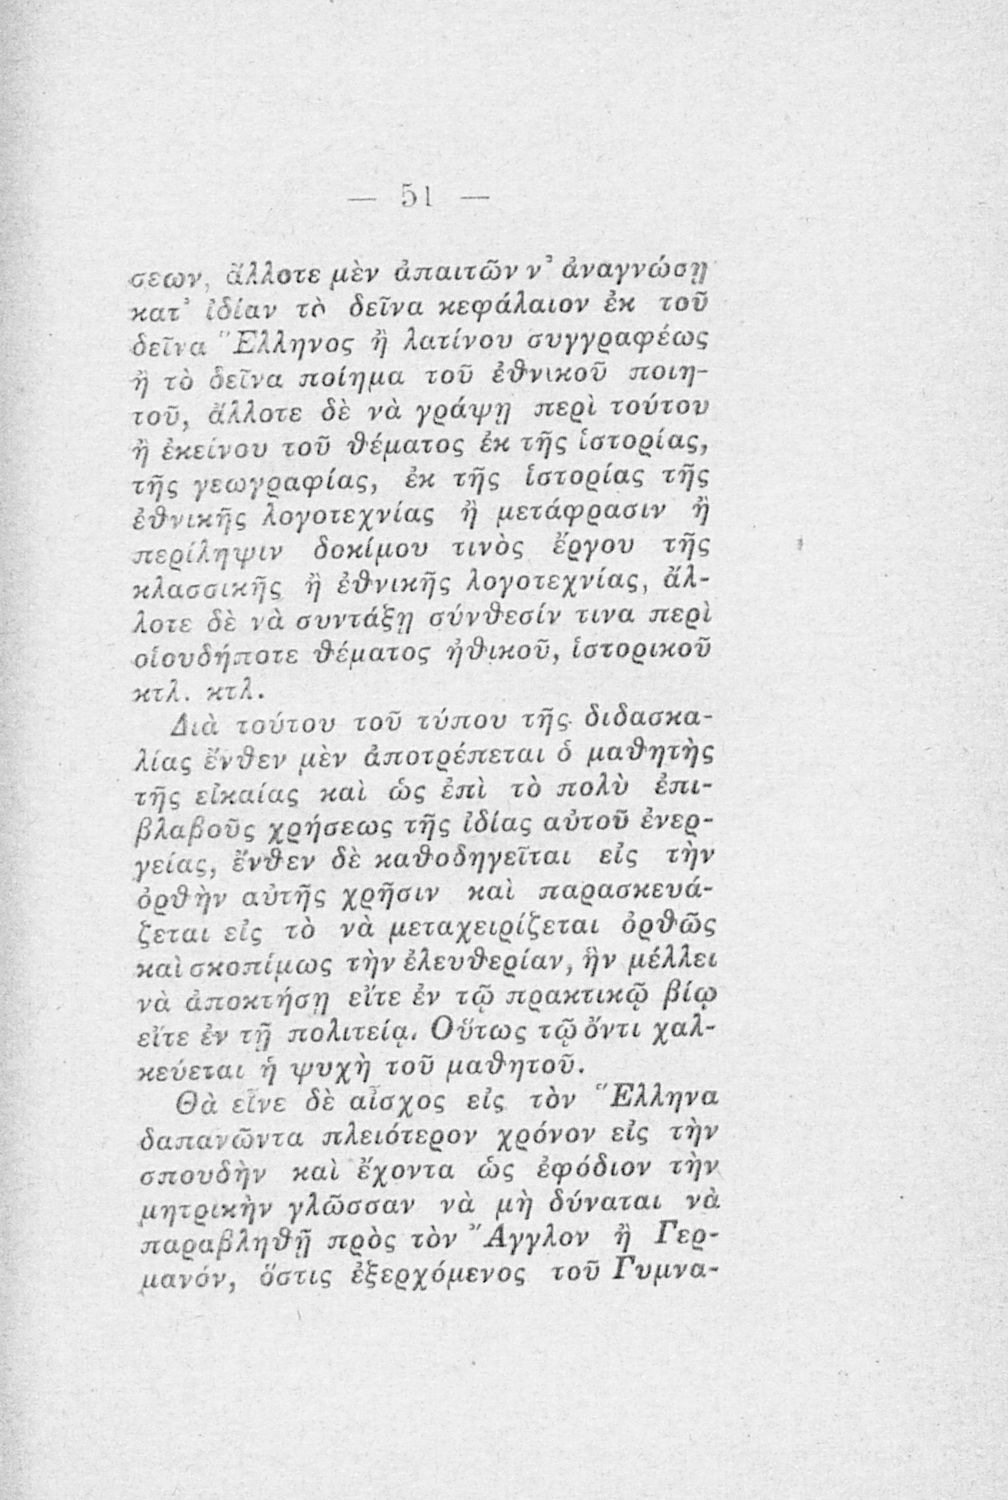 — 51 —
σεων, ἄλλοτε μὲν ἀπαιτῶν ν' ἀναγνώσῃ
κατ' ἰδίαν τὸ δεῖνα κεφάλαιον ἐκ τοῦ
δεῖνα Ἕλληνος ἢ λατίνου συγγραφέως
ἢ τὸ δεῖνα ποίημα τοῦ ἐθνικοῦ ποιη-
τοῦ, ἄλλοτε δὲ νὰ γράψῃ περὶ τούτου
ἢ ἐκείνου τοῦ θέματος ἐκ τῆς ἱστορίας,
τῆς γεωγραφίας, ἐκ τῆς ἱστορίας τῆς
ἐθνικῆς λογοτεχνίας ἢ μετάφρασιν ἢ
περίληψιν δοκίμου τινὸς ἔργου τῆς
κλασσικῆς ἢ ἐθνικῆς λογοτεχνίας, ἄλ-
λοτε δὲ νὰ συντάξῃ σύνθεσίν τινα περὶ
οἱουδήποτε θέματος ἠθικοῦ, ἱστορικοῦ
κτλ. κτλ.
Διὰ τούτου τοῦ τύπου τῆς διδασκα-
λίας ἔνθεν μὲν ἀποτρέπεται ὁ μαθητὴς
τῆς εἰκαίας καὶ ὡς ἐπὶ τὸ πολὺ ἐπι-
βλαβοῦς χρήσεως τῆς ἰδίας αὐτοῦ ἐνερ-
γείας, ἔνθεν δὲ καθοδηγεῖται εἰς τὴν
ὀρθὴν αὐτῆς χρῆσιν καὶ παρασκευά-
ζεται εἰς τὸ νὰ μεταχειρίζεται ὀρθῶς
καὶ σκοπίμως τὴν ἐλευθερίαν, ἣν μέλλει
νὰ ἀποκτήσῃ εἴτε ἐν τῷ πρακτικῷ βίῳ
εἴτε ἐν τῇ πολιτείᾳ. Οὕτως τῷ ὄντι χαλ-
κεύεται ἡ ψυχὴ τοῦ μαθητοῦ.
Θὰ εἶνε δὲ αἶσχος εἰς τὸν Ἕλληνα
δαπανῶντα πλειότερον χρόνον εἰς τὴν
σπουδὴν καὶ ἔχοντα ὡς ἐφόδιον τὴν
μητρικὴν γλῶσσαν νὰ μὴ δύναται νὰ
παραβληθῇ πρὸς τὸν Ἄγγλον ἢ Γερ-
μανόν, ὅστις ἐξερχόμενος τοῦ Γυμνα-